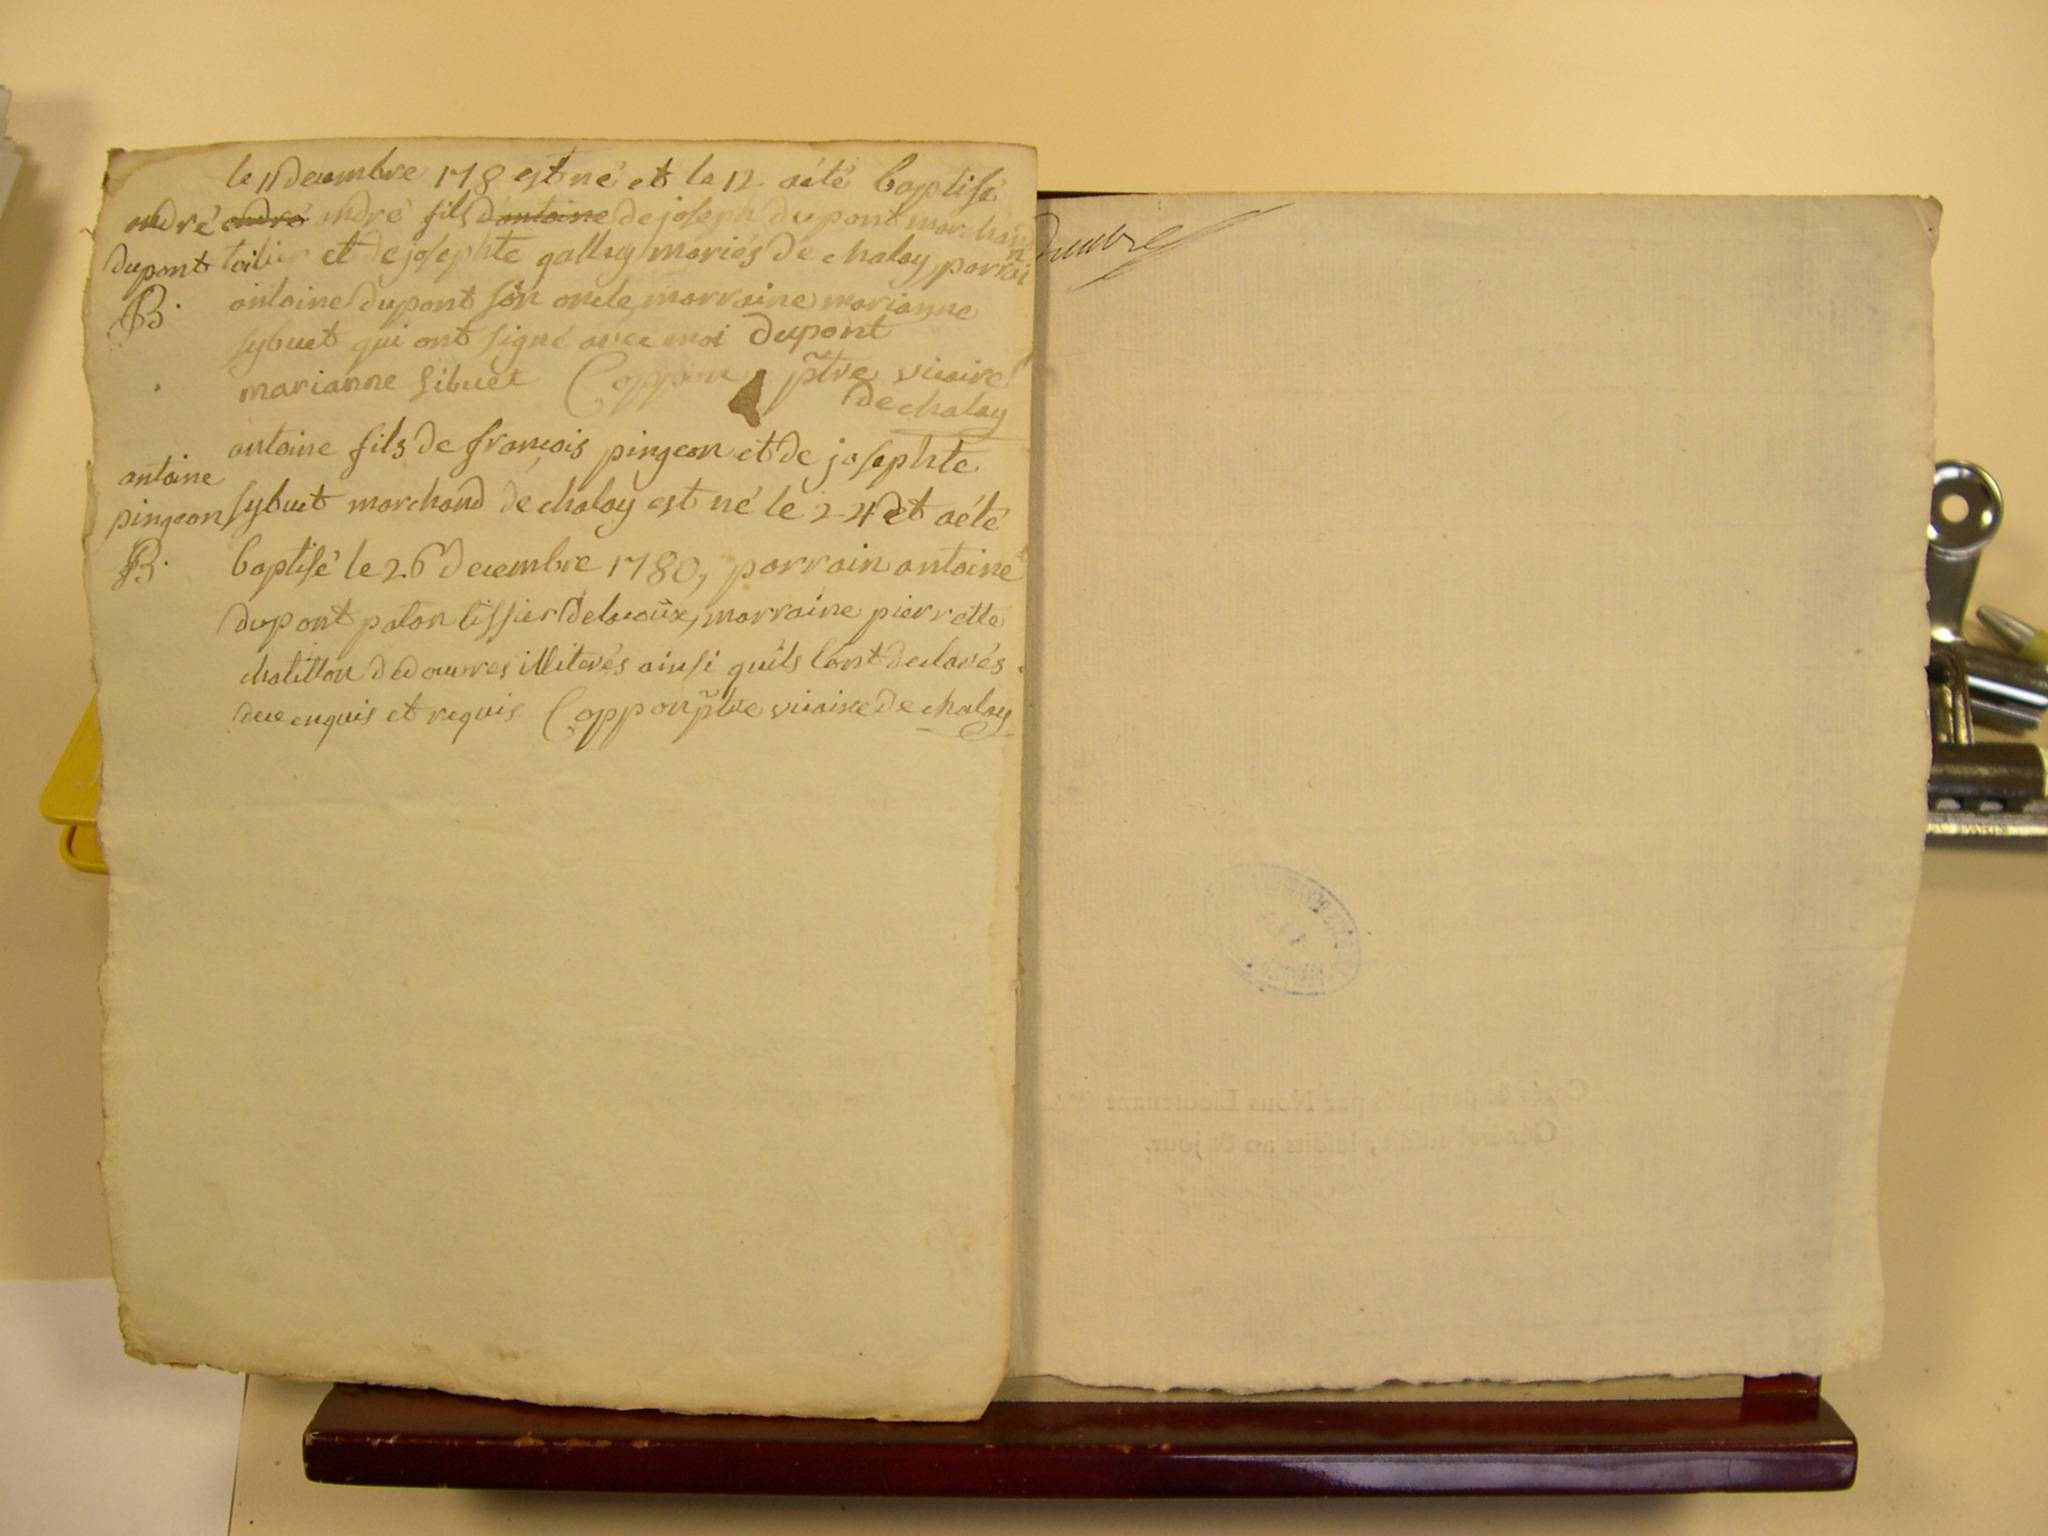 le 11 decembre 178 est né et le 12 aété baptisé
andré andré andré fils d'antoine de joseph dupont marchand
dupont toilier et de josephte gallay mariés de chalay, parrain
B. antoine dupont son oncle, marraine marianne
sybuet qui ont signé avec moi Dupont
marianne sibuet Coppon ptre vicaire
de chalay
antoine fils de françois pingeon et de josephte
antoine
pingeon sybuet marchand de chalay est né le 24 et aété
B. baptisé le 26 decembre 1780, parrain antoine
dupont tissier marraine pierrette
chatillon illiterés ainsi quils l'ont declarés
de ce enquis et requis Coppon ptre vicaire de chalay
Cotés & paraphés par Nous Lieutenant
Général susdit, lesdits an & jour.